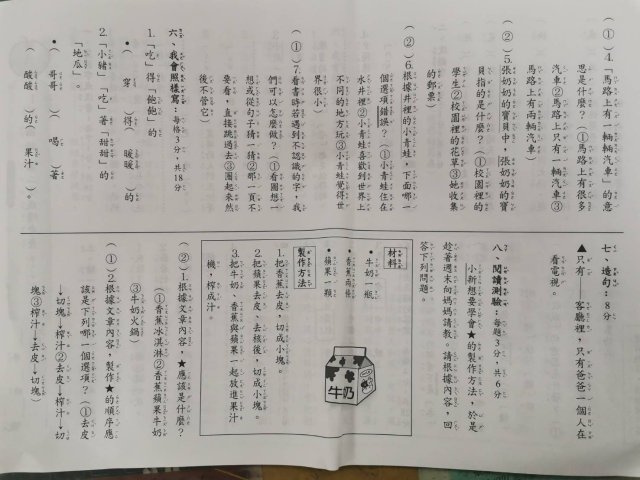 (①)4.「馬路上有一輛輛汽車」的意
思是什麼？(①馬路上有很多
汽車②馬路上只有一輛汽車③
馬路上有兩輛汽車)
(②)5.張奶奶的寶貝中，張奶奶的寶
貝指的是什麼？(①校園裡的
學生②校園裡的花草③她收集
的郵票)
(②)6.根據井裡的小青蛙，下面哪一
個選項錯誤？(①小青蛙住在
水井裡②小青蛙喜歡到世界上
不同的地方玩③小青蛙覺得世
界很小)
(①)7.看書時若遇到不認識的字，我
們可以怎麼做？(①看圖想一
想或從句子猜一猜②哪一頁不
要看，直接跳過去③圈起來然
後不管它)
六、我會照樣寫：每格3分，共18分
1.「吃」得「飽飽」的
•(穿)得(暖暖)的
2.「小豬」「吃」著「甜甜」的
「地瓜」。
•(哥哥)(喝)著
(酸酸)的(果汁)。
七、造句：8分
▲只有——客廳裡，只有爸爸一個人在
看電視。
八、閱讀測驗：每題3分，共6分
小新想要學會★的製作方法，於是
趁著週末向媽媽請教，請根據內容，回
答下列問題。
材料
•牛奶一瓶
•香蕉兩條
•蘋果一顆
牛奶
製作方法
1.把香蕉去皮、切成小塊。
2.把蘋果去皮、去核後，切成小塊。
3.把牛奶、香蕉與蘋果一起放進果汁
機，榨成汁。
(②)1.根據文章內容，★應該是什麼？
(①香蕉冰淇淋②香蕉蘋果牛奶
③牛奶火鍋)
(①)2.根據文章內容，製作★的順序應
該是下列哪一個選項？(①去皮
→切塊→榨汁②去皮→榨汁→切
塊③榨汁→去皮→切塊)